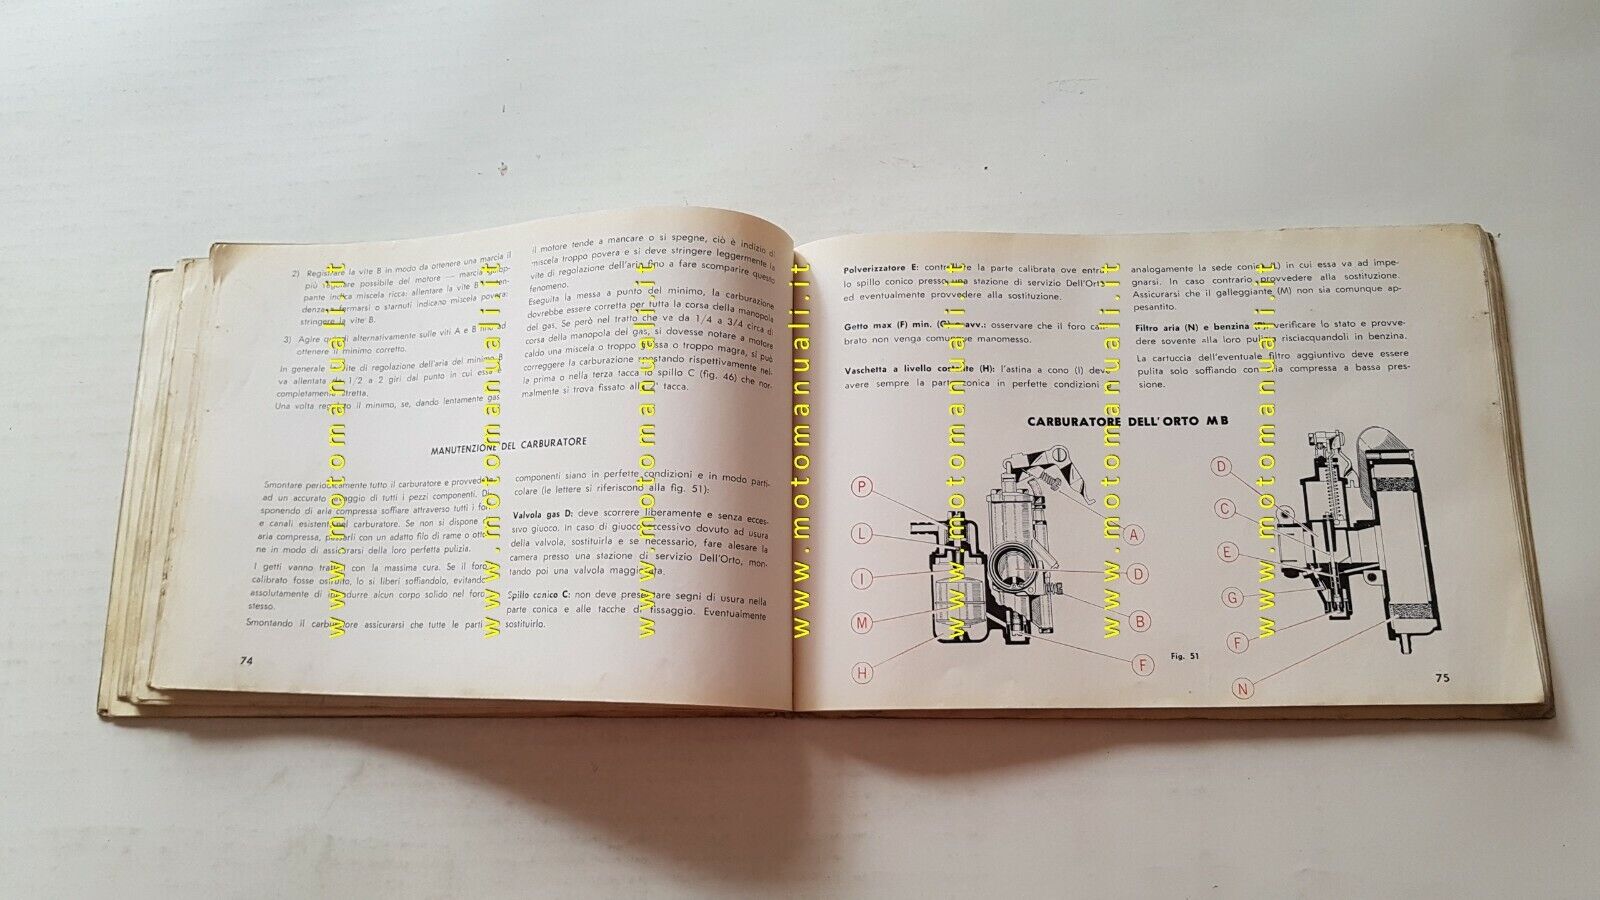 2) Registrare la vite B in modo da ottenere una marcia il
più regolare possibile del motore — marcia
pante indica miscela ricca: allentare la vite B
denza a fermarsi o starnuti indicano miscela povera:
stringere la vite B.
3) Agire quindi alternativamente sulle viti A e B fino ad
ottenere il minimo corretto.
In generale la vite di regolazione dell'aria del minimo B
va allentata da 1/2 a 2 giri dal punto in cui essa è
completamente stretta.
Una volta regolato il minimo, se, dando lentamente gas
il motore tende a mancare o si spegne, ciò è indizio di
miscela troppo povera e si deve stringere leggermente la
vite di regolazione dell'aria fino a fare scomparire questo
fenomeno.
Eseguita la messa a punto del minimo, la carburazione
dovrebbe essere corretta per tutta la corsa della manopola
del gas. Se però nel tratto che va da 1/4 a 3/4 circa di
corsa della manopola del gas, si dovesse notare a motore
caldo una miscela o troppo grassa o troppo magra, si può
correggere la carburazione spostando rispettivamente nel-
la prima o nella terza tacca lo spillo C (fig. 46) che nor-
malmente si trova fissato alla 2ª tacca.
MANUTENZIONE DEL CARBURATORE
Smontare periodicamente tutto il carburatore e provvedere
ad un accurato lavaggio di tutti i pezzi componenti. Di-
sponendo di aria compressa soffiare attraverso tutti i fori
e canali esistenti nel carburatore. Se non si dispone di
aria compressa, passarli con un adatto filo di rame o otto-
ne in modo di assicurarsi della loro perfetta pulizia.
I getti vanno trattati con la massima cura. Se il foro
calibrato fosse ostruito, lo si liberi soffiandolo, evitando
assolutamente di introdurre alcun corpo solido nel foro
stesso.
Smontando il carburatore assicurarsi che tutte le parti
componenti siano in perfette condizioni e in modo parti-
colare (le lettere si riferiscono alla fig. 51):
Valvola gas D: deve scorrere liberamente e senza ecces-
sivo giuoco. In caso di giuoco eccessivo dovuto ad usura
della valvola, sostituirla e se necessario, fare alesare la
camera presso una stazione di servizio Dell'Orto, mon-
tando poi una valvola maggiorata.
Spillo conico C: non deve presentare segni di usura nella
parte conica e alle tacche di fissaggio. Eventualmente
sostituirlo.
74
Polverizzatore E: controllare la parte calibrata ove entra
lo spillo conico presso una stazione di servizio Dell'Orto
ed eventualmente provvedere alla sostituzione.
Getto max (F) min. (G) e avv.: osservare che il foro cali-
brato non venga comunque manomesso.
Vaschetta a livello costante (H): l'astina a cono (I) deve
avere sempre la parte conica in perfette condizioni e
analogamente la sede conica (L) in cui essa va ad impe-
gnarsi. In caso contrario provvedere alla sostituzione.
Assicurarsi che il galleggiante (M) non sia comunque ap-
pesantito.
Filtro aria (N) e benzina (P): verificare lo stato e provve-
dere sovente alla loro pulizia risciacquandoli in benzina.
La cartuccia dell'eventuale filtro aggiuntivo deve essere
pulita solo soffiando con aria compressa a bassa pres-
sione.
CARBURATORE DELL'ORTO MB
P
L
I
M
H
A
D
B
F
D
C
E
G
F
N
Fig. 51
75
www.motomanuali.it
www.motomanuali.it
www.motomanuali.it
www.motomanuali.it
www.motomanuali.it
www.motomanuali.it
www.motomanuali.it